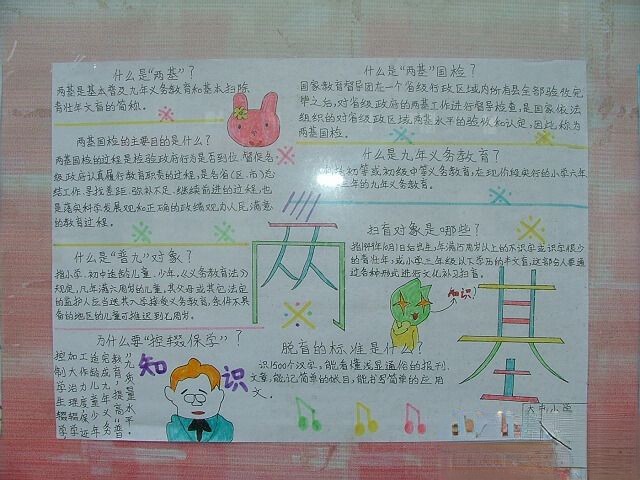 什么是"两基"？
两基是基本普及九年义务教育和基本扫除
青壮年文盲的简称。
两基国检的主要目的是什么？
两基国检的过程是检验政府行为是否到位,督促各
级政府认真履行教育职责的过程,是各省(区、市)总
结工作、寻找差距、弥补不足、继续前进的过程,也
是落实科学发展观和正确的政绩观为人民满意
的教育过程。
什么是"普九"对象？
指小学、初中适龄儿童、少年。《义务教育法》
规定,凡年满六周岁的儿童,其父母或其它法定
的监护人应当送其入学接受义务教育,条件不具
备的地区的儿童可推迟到七周岁。
为什么要"控辍保学"？
控加工适完教九
制大作龄成育年
学治力儿九,质
生理度童年提量
辍辍保少义高水
学学证年务普平
知识
什么是"两基"国检？
国家教育督导团在一个省级行政区域内所有县全部验收完
毕之后,对省级政府的两基工作进行督导检查,是国家依法
组织的对省级政区域两基水平的验收和认定,因此,称为
两基国检。
什么是九年义务教育？
初等或初级中等义务教育,在现阶段实行的小学六年
三年的九年义务教育。
扫盲对象是哪些？
年满15周岁以上的不识字或识字很少
的青壮年,或小学三年级以下学历的半文盲,这部分人要通
过各种形式进行文化补习扫盲。
知识！
脱盲的标准是什么？
识1500个汉字,能看懂浅显通俗的报刊、
文章,能记简单的帐目,能书写简单的应用
文。
两
基